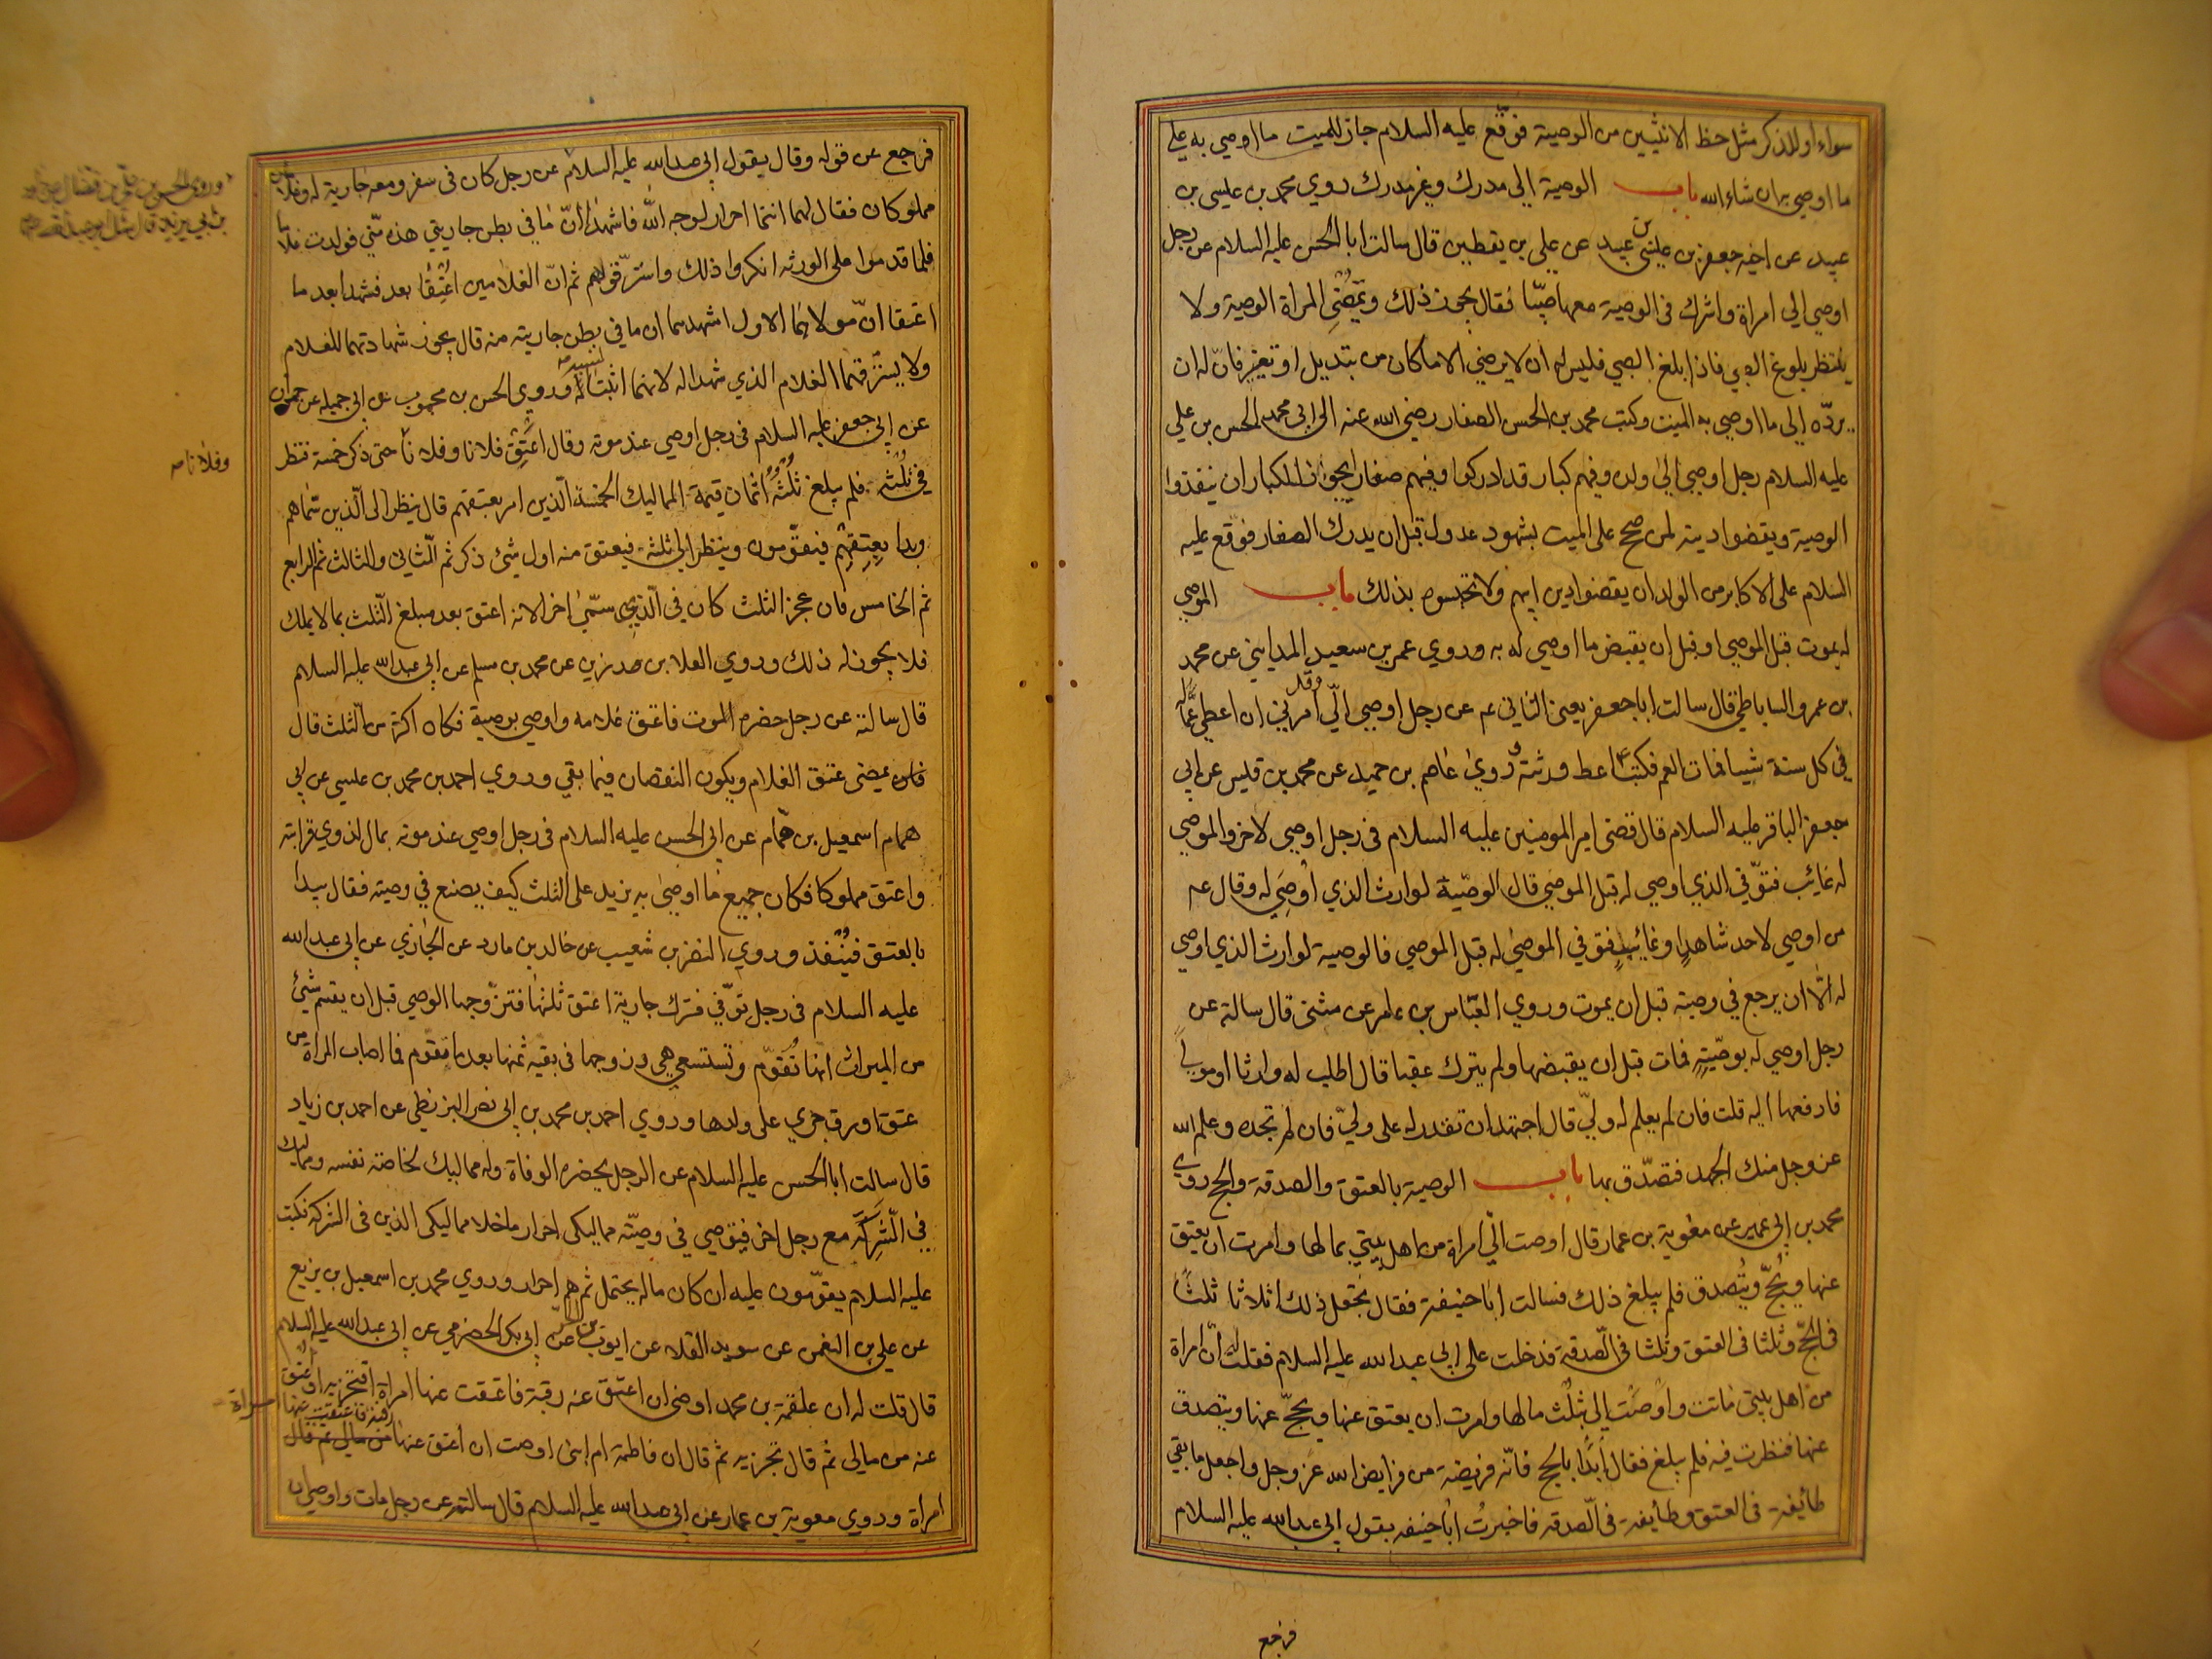 سواء او للذكر مثل حظ الانثيين من الوصية فوقّع عليه السلام جاز للميت ما اوصي به علي
ما اوصي به ان شاء الله باب الوصية الي مدرك وغير مدرك روي محمد بن عليسي بن
عبيد عن اخيه جعفر بن عليسي بن عبيد عن علي بن يقطين قال سالت ابا الحسن عليه السلام عن رجل
اوصي الي امراة واشرك في الوصية معها صبيّا فقال يجوز ذلك وتمضي المراة الوصية ولا
ينتظر بلوغ الصبي فاذا بلغ الصبي فليس له ان لا يرضي الا ما كان من تبديل او تغيير فانّ له ان
يردّه إلي ما اوصي به الميت وكتب محمد بن الحسن الصفار رضي الله عنه الي ابي محمد الحسن بن علي
عليه السلام رجل اوصي الي ولده وفيهم كبار قد ادركوا وفيهم صغار ايجوز للكبار ان ينفذوا
الوصية ويقضوا دينه لمن صح علي الميت بشهود عدول قبل ان يدرك الصغار فوقّع عليه
السلام علي الاكابر من الولد ان يقضوا دين ابيهم ولا تحبسوه بذلك باب الموصي
له يموت قبل الموصي او قبل ان يقبض ما اوصي له به وروي عمر بن سعيد المدايني عن محمد
بن عمرو الساباطي قال سالت ابا جعفر يعني الثاني عم عن رجل اوصي اليّ وامرني ان اعطي عمّا له
في كل سنة شيئا فمات العم فكتب اعط ورثته روي عاصم بن حميد عن محمد بن قليس عن ابي
جعفر الباقر عليه السلام قال قضي امير المومنين عليه السلام في رجل اوصي لاخر والموصي
له غائب فتوّفي الذي اوصي له قبل الموصي قال الوصيّة لوارث الذي اوصي له وقال عم
من اوصي لاحد شاهدا او غائبا فتوفي الموصي له قبل الموصي فالوصية لوارث الذي اوصي
له الّا ان يرجع في وصيته قبل ان يموت وروي العبّاس بن عامر عن مثني قال سالته عن
رجل اوصي له بوصيّة فمات قبل ان يقبضها ولم يترك عقبا قال اطلب له وارثا او مولي
فادفعها اليه قلت فان لم يعلم له وليّ قال اجتهد ان تقدر له علي وليّ فان لم تجده وعلم الله
عز وجل منك الجهد فتصدّق بها باب الوصية بالعتق والصدقة والحج روي
محمد بن ابي عمير عن معوية بن عمار قال اوصت اليّ امراة من اهل بيتي بمالها وامرت ان يعتق
عنها ويحجّ ويتصدق فلم يبلغ ذلك فسالت ابا حنيفة فقال تجعل ذلك اثلاثا ثلثا
في الحجّ وثلثا في العتق وثلثا في الصّدقة فدخلت علي ابي عبد الله عليه السلام فقلت له انّ امراة
من اهل بيتي ماتت واوصت الي بثلث مالها وامرت ان يعتق عنها ويحجّ عنها ويتصدق
عنها فنظرت فيه فلم يبلغ فقال ابدأ بالحج فانّه فريضة من فرايض الله عز وجل واجعل ما بقي
طايفة في العتق وطايفة في الصّدقة فاخبرت ابا حنيفه بقول ابي عبد الله عليه السلام
فرجع
فرجع عن قوله وقال بقول ابي عبد الله عليه السلام عن رجل كان في سفر ومعه جارية له وغلامان
مملوكان فقال لهما انتما احرار لوجه الله فاشهدا انّ ما في بطن جاريتي هذه منّي فولدت غلاما
فلما قدموا علي الورثه انكروا ذلك واسترقّوهم ثم انّ الغلامين اعتقا بعد فشهدا بعد ما
اعتقا انّ مولاهما الاول اشهدهما ان ما في بطن جاريته منه قال يجوز شهادتهما للغلام
ولا يسترقّهما الغلام الذي شهدا له لانهما اثبتا نسبه وروي الحسن بن محبوب عن ابي جميله عن حمران
عن ابي جعفر عليه السلام في رجل اوصي عند موته وقال اعتق فلانا وفلانا حتي ذكر خمسة فنظر
في ثلثه فلم يبلغ ثلثه اثمان قيمة المماليك الخمسة الّذين امر بعتقهم قال ينظر الي الّذين سمّاهم
وبدا بعتقهم فيقوّمون وينظر الي ثلثه فيعتق منه اول شيئ ذكر ثم الثّاني والثالث ثم الرابع
ثم الخامس فان عجز الثلث كان في الّذي سمّي اخرا لانه اعتق بعد مبلغ الثّلث بما لا يملك
فلا يجوز له ذلك وروي العلا بن رزين عن محمد بن مسلم عن ابي عبد الله عليه السلام
قال سالته عن رجل حضره الموت فاعتق غلامه واوصي بوصية فكان اكثر من الثّلث قال
يمضي عتق الغلام ويكون النقصان فيما بقي وروي احمد بن محمد بن عليسي عن ابي
همام اسمعيل بن همّام عن ابي الحسن عليه السلام في رجل اوصي عند موته بمال لذوي قرابته
واعتق مملوكا فكان جميع ما اوصي به يزيد علي الثلث كيف يصنع في وصيته فقال يبدا
بالعتق فينفذ وروي النضر بن شعيب عن خالد بن مارد عن الجازي عن ابي عبد الله
عليه السلام في رجل توّفي فترك جارية اعتق ثلثها فتزّوجها الوصي قبل ان يقسم شيئ
من الميراث انها تقوّم وتستسعي هي وزوجها في بقيه ثمنها بعد ما تقوم فما اصاب المراة من
عتق او رق جري علي ولدها وروي احمد بن محمد بن ابي نصر البزنطي عن احمد بن زياد
قال سالت ابا الحسن عليه السلام عن الرجل يحضره الوفاة وله مماليك لخاصة نفسه ومماليك
في الّشركه مع رجل اخر فيوصي في وصيّته مماليكي احرار ما خلا مماليكي الذين في الشركه فكتب
عليه السلام يقوّمون عليه ان كان ماله يحتمل ثم هم احرار وروي محمد بن اسمعيل بن بزيع
عن علي بن النعمن عن سويد القلا عن ايوب بن الحر عن ابي بكر الحضرمي عن ابي عبد الله عليه السلام
قال قلت له ان علقمة بن محمد اوصي ان اعتق عنه رقبة فاعتقت عنها امراة افتجزيه او اعتق
عنه من مالي ثم قال تجزيه ثم قال ان فاطمة ام ابني اوصت ان اعتق عنها رقبة فاعتقت عنها امراة
امراة وروي معوية بن عمار عن ابي عبد الله عليه السلام قال سالته عن رجل مات واوصي ان
وفلانا صه